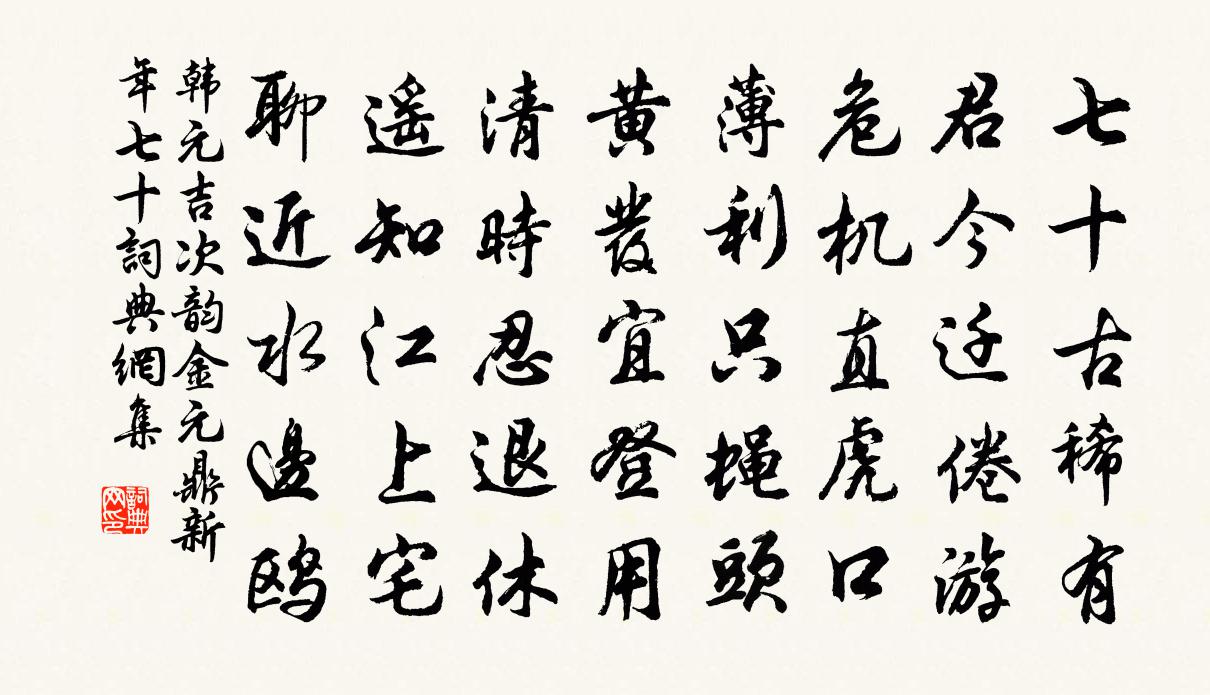 七十古稀有
君今迂倦游
危机直虎口
薄利只蝇頭
黄發宜登用
清時忍退休
遥知江上宅
聊近水邊鸥
韩元吉次韵金元鼎新
年七十詞典網集
詞典
网印